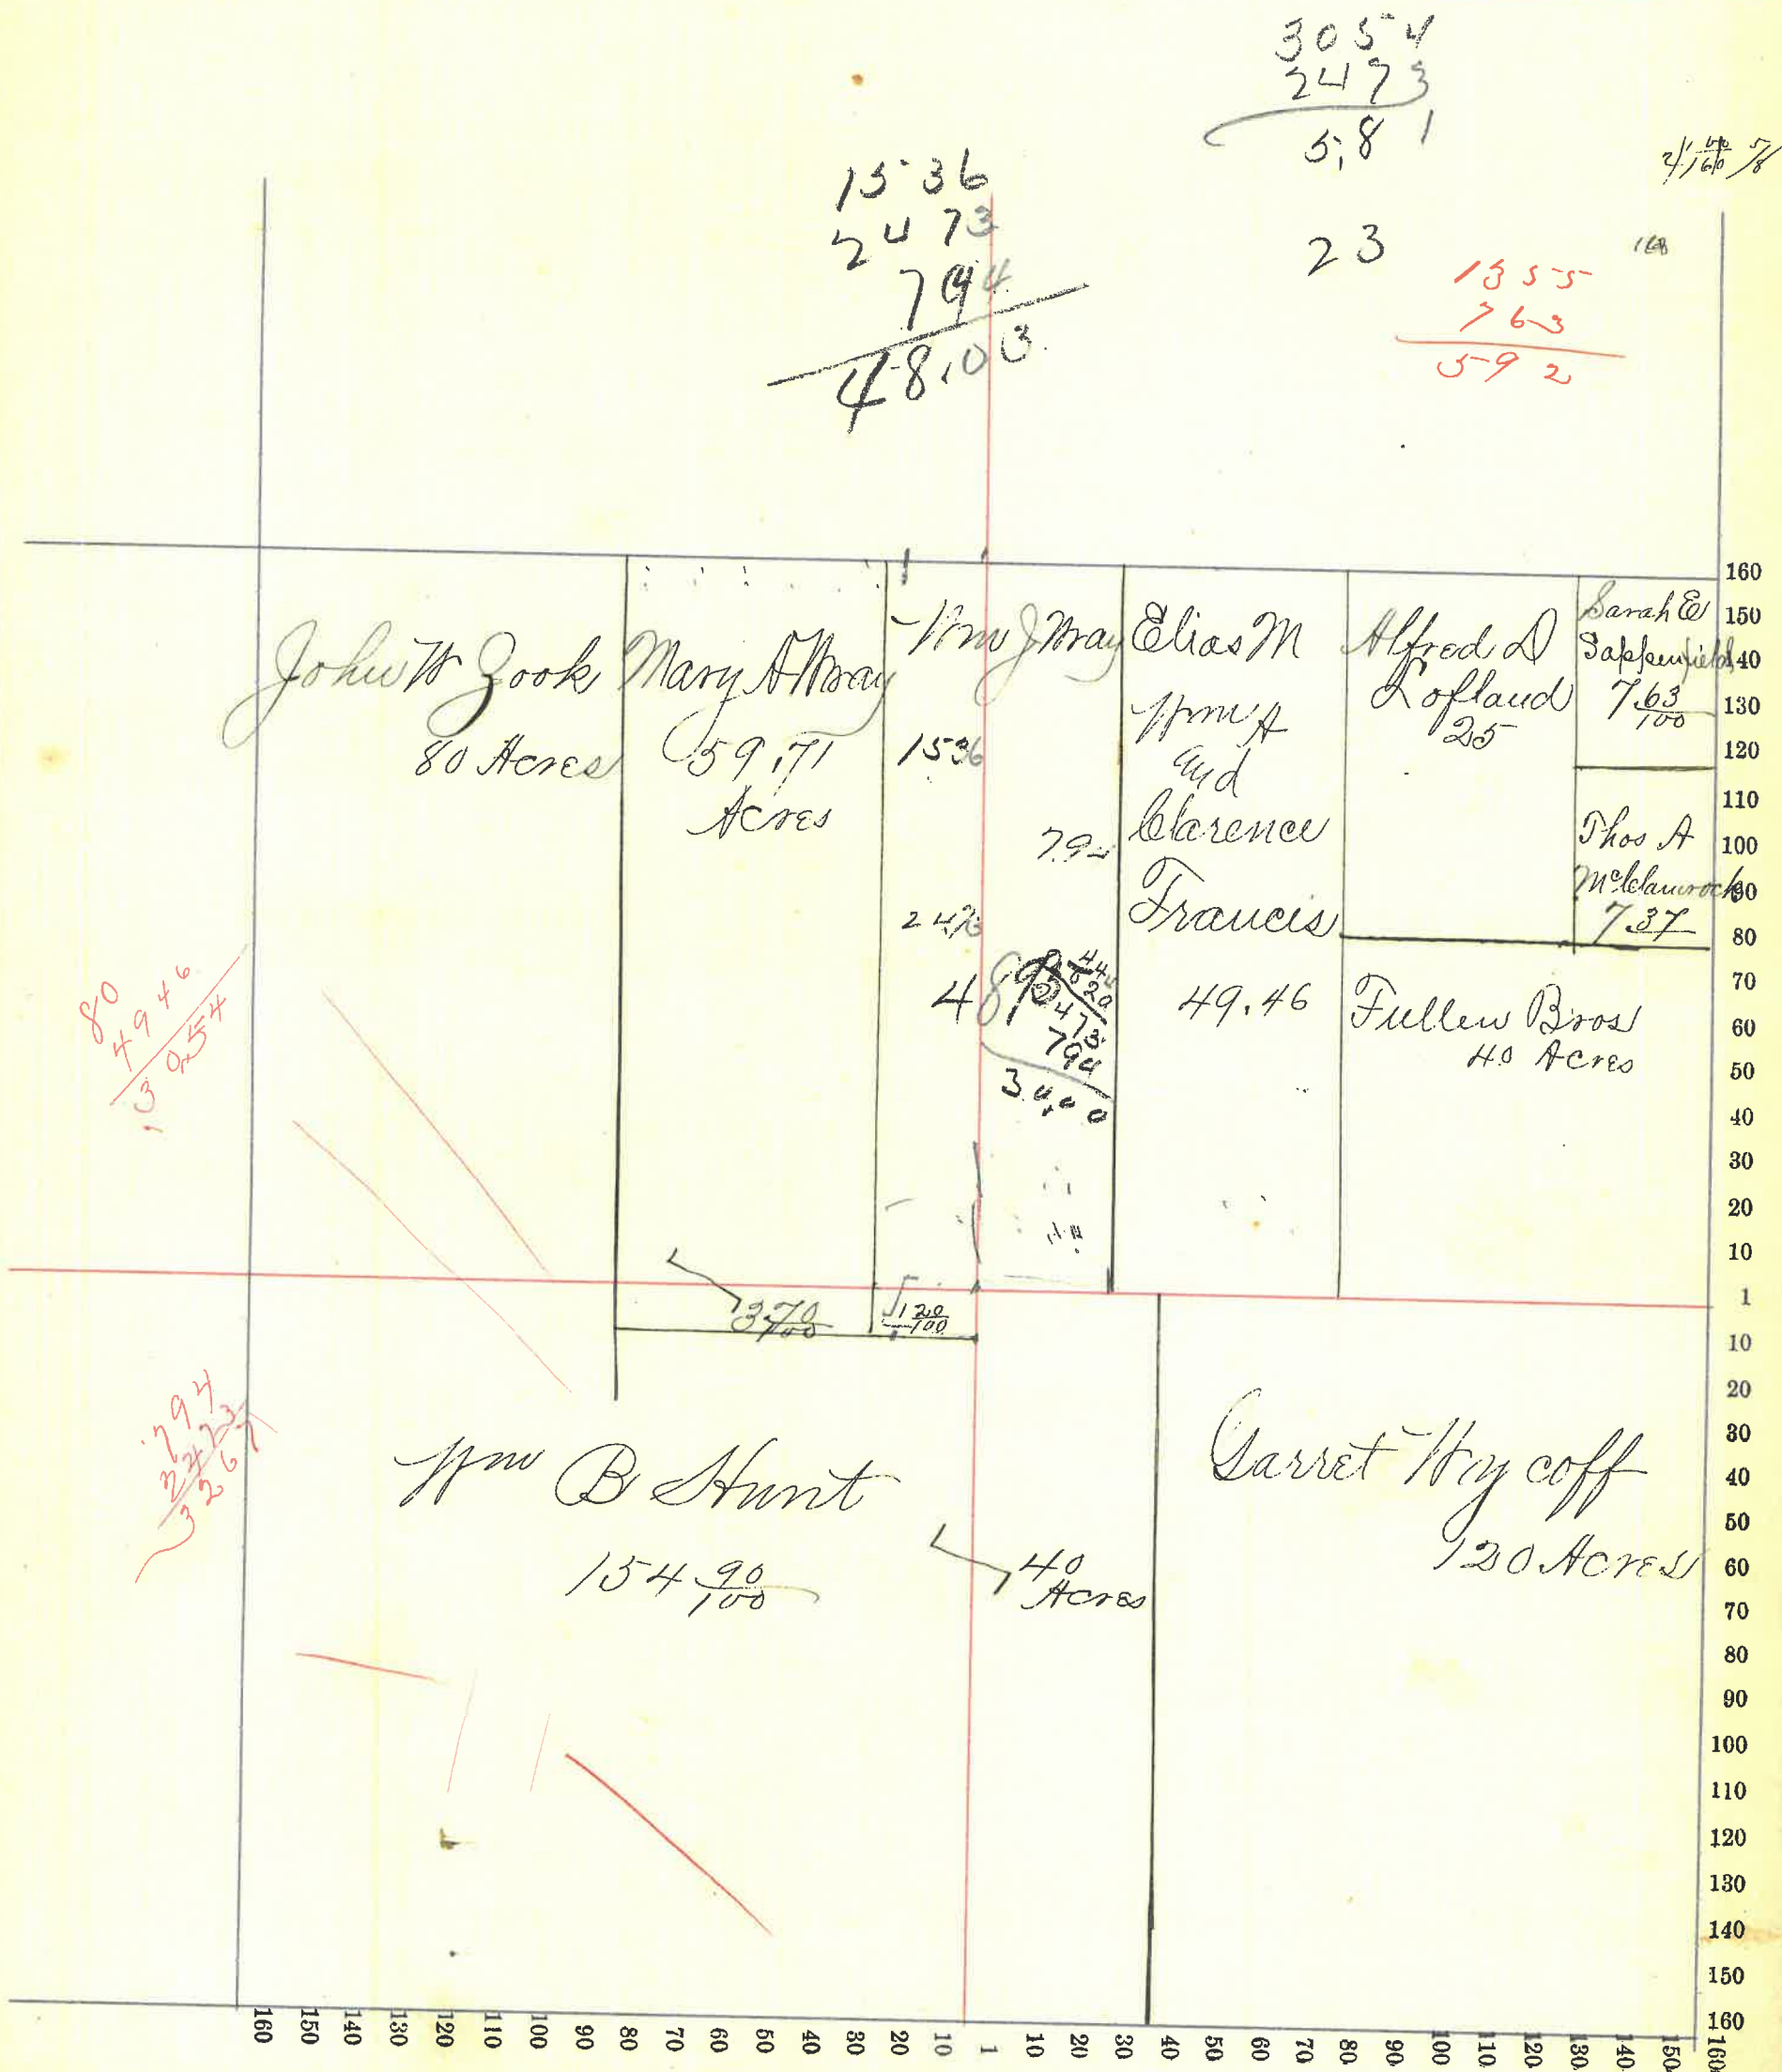 3054
2473
5,81
1536
2473
794
48,03
23
168
1355
763
592
John W Zook
80 Acres
Mary A Wray
59,71
Acres
Wm J Wray
1536
2473
794
48
473
794
Elias M
Wm A
and
Clarence
Francis
49.46
Alfred D
Lofland
25
Sarah E
Sappenfield
7 63/100
Thos A
McClamrock
7.37
Fullen Bros
40 Acres
80
4946
3054
3 70/100
1 20/100
794
2473
3267
Wm B Hunt
154 90/100
40
Acres
Garret Wycoff
120 Acres
160
150
140
130
120
110
100
90
80
70
60
50
40
30
20
10
1
10
20
30
40
50
60
70
80
90
100
110
120
130
140
150
160
160 150 140 130 120 110 100 90 80 70 60 50 40 30 20 10 1 10 20 30 40 50 60 70 80 90 100 110 120 130 140 150 160